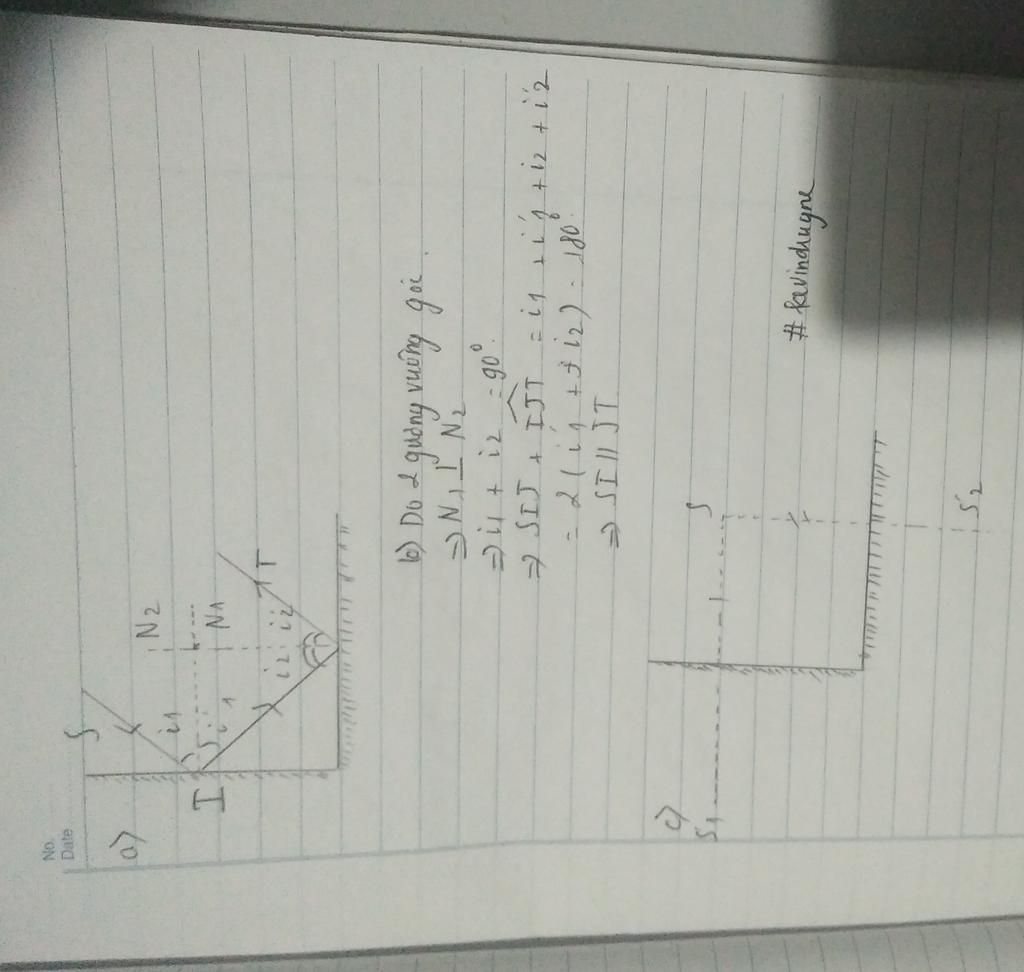 No.
Date
a)
S
N2
i1
I
i'1
N1
i2 i'2
T
b) Do 2 gương vuông góc.
⇒ N1 ⊥ N2
⇒ i1 + i2 = 90°.
⇒ SIJ + IJT = i1 + i'1 + i2 + i'2
= 2 (i'1 + i2) = 180°.
⇒ SI // JT
c)
S1
S
S2
# kevindrugne